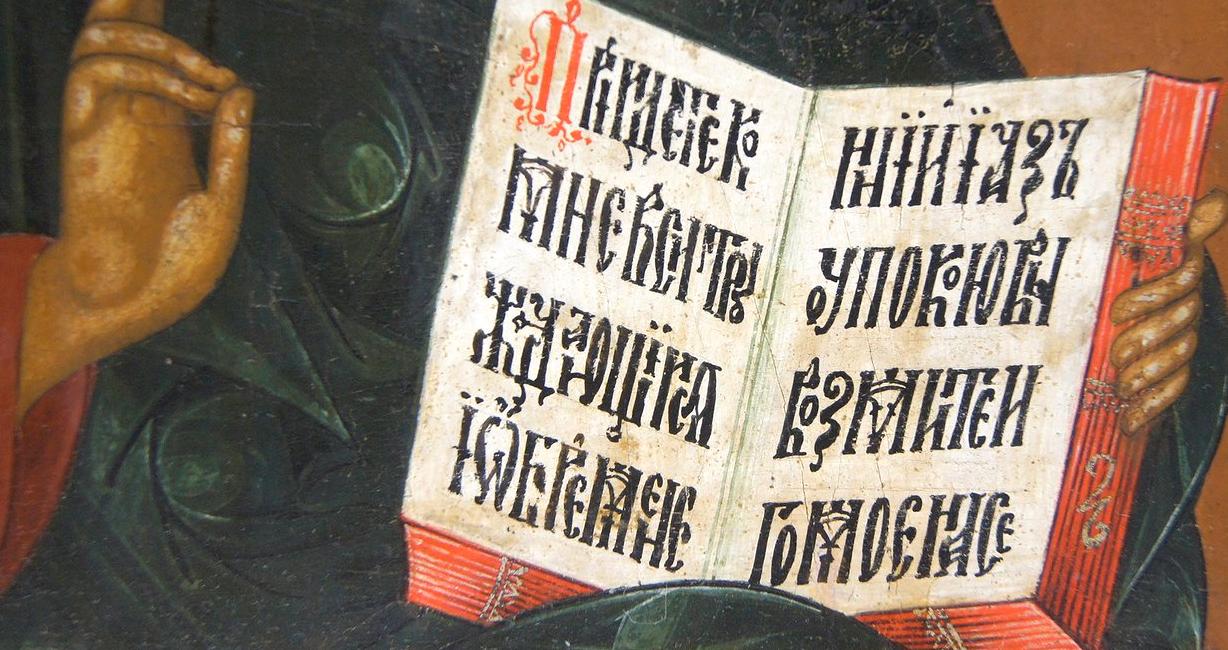 Прїидѣтеко
мнѣвситрꙋ
ждꙋающїиса
їѡбремене
нїиїазъ
ꙋпокоювы
возмитеи
гомоенасе